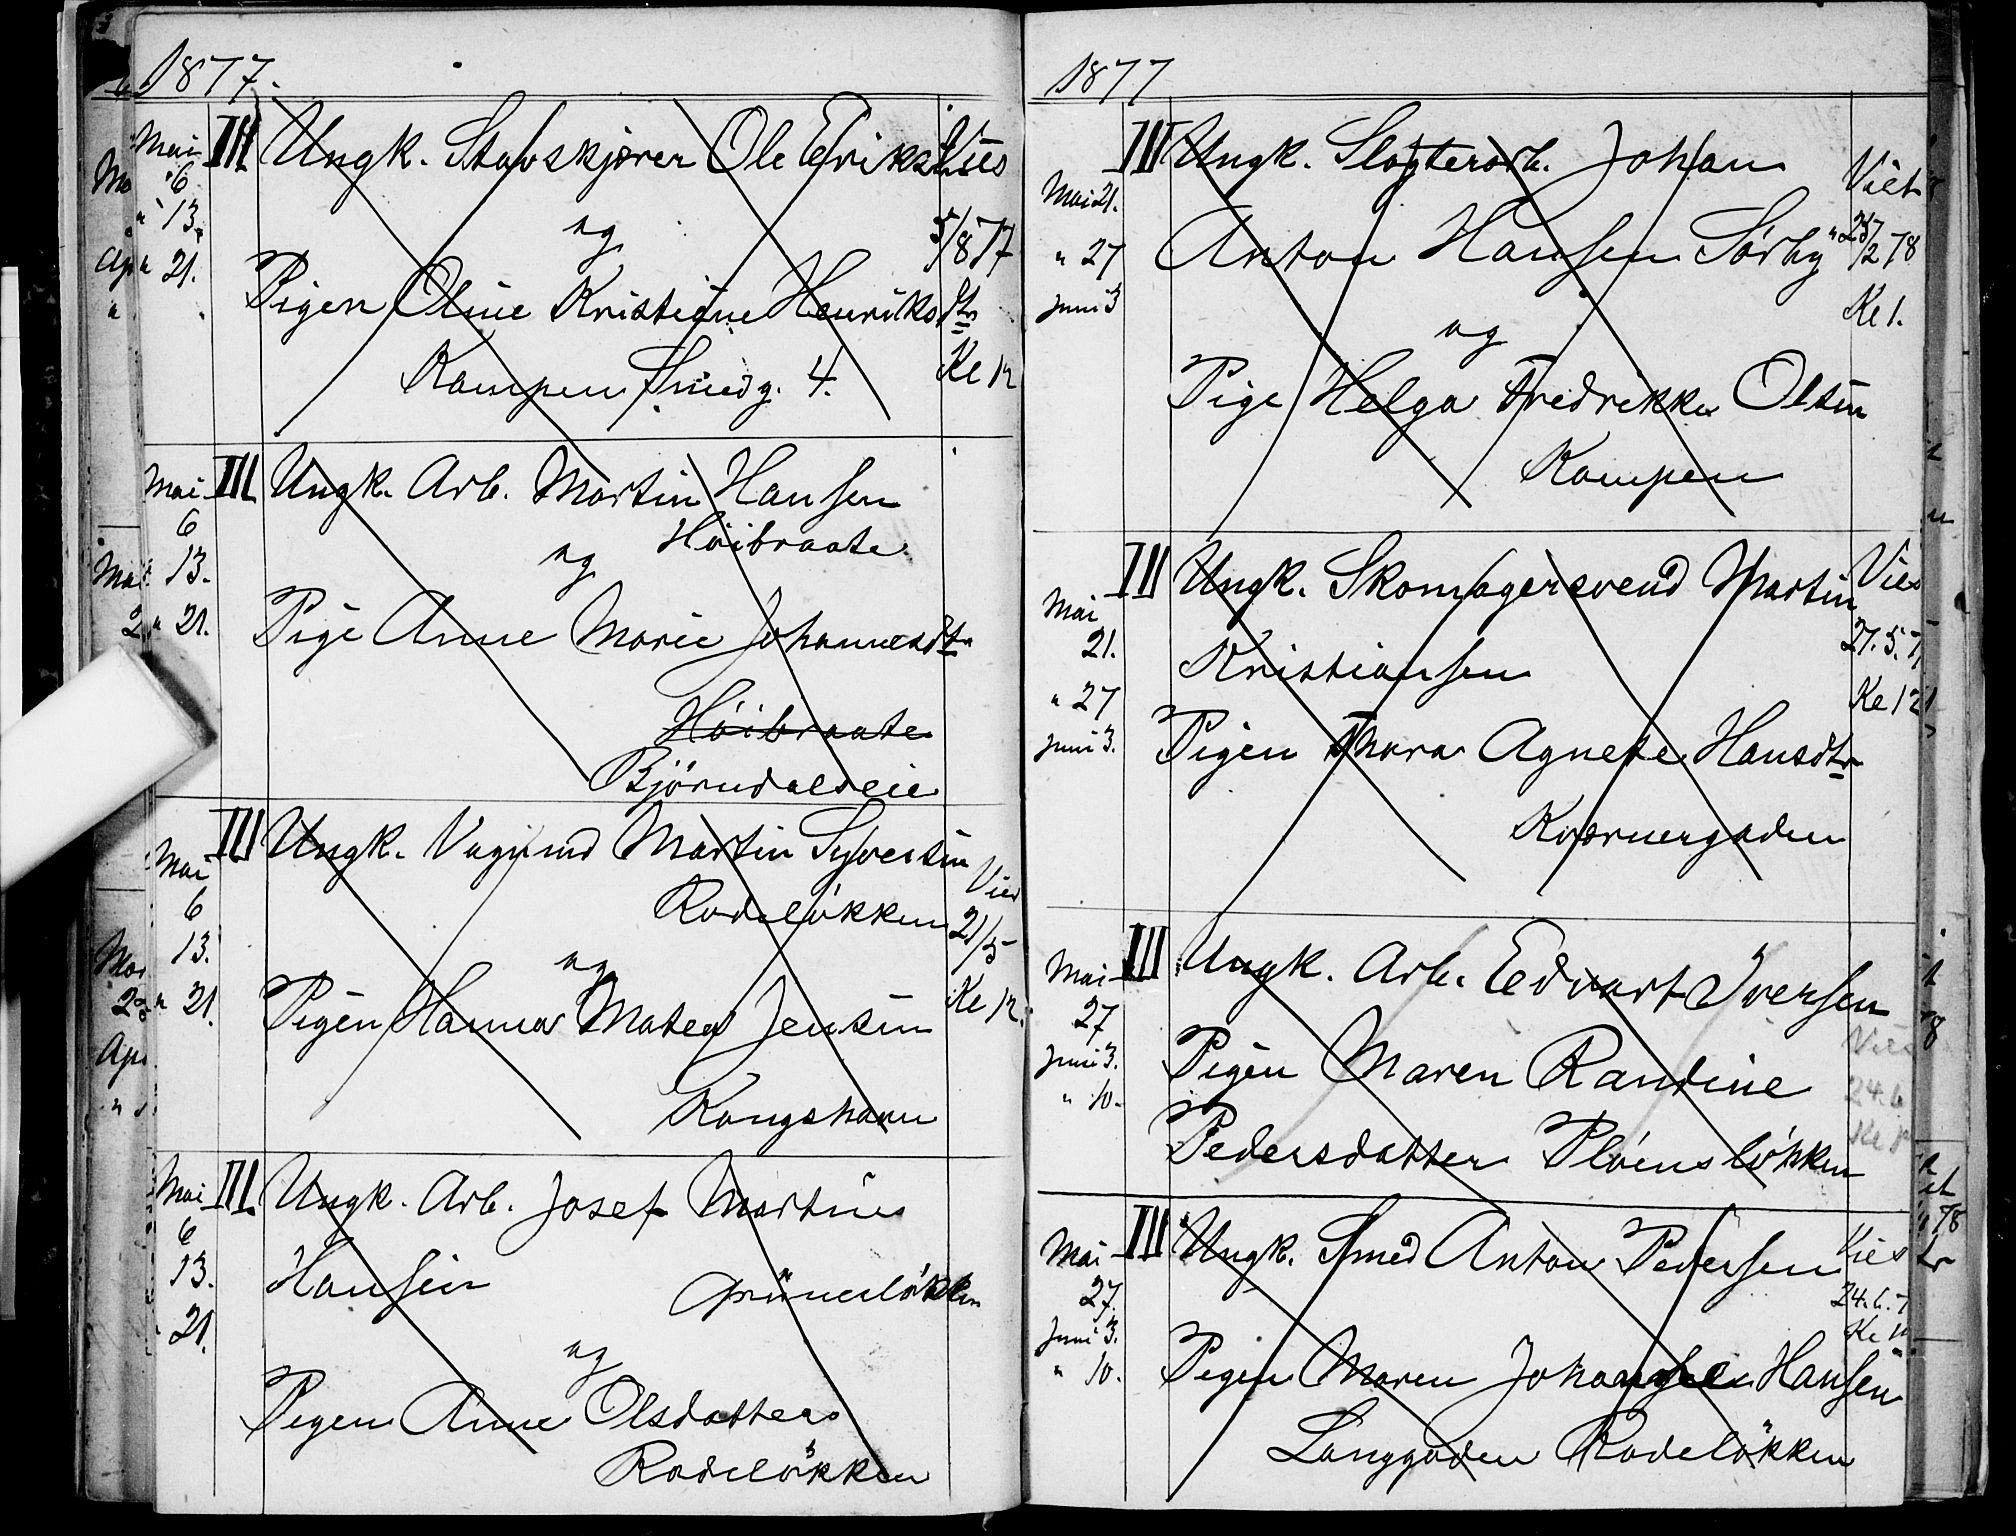 1877.
Mai III Ungk. Stavskjærer Ole Eriks. Vies
6
" 13.
og 5/8 77
" 21. Pigen Oline Kristine Henriksdtr
Kampen Smedg. 4. Ke 12
Mai III Ungk. Arb. Martin Hansen
6 Höibraate
13. og
" 21. Pige Anne Marie Johannesdtr
Höibraate
Björndalseie
Mai III Ungk. Vognmd Martin Syversen Vies
6 Rodelökken 21/5
13. og
" 21. Pigen Hanna Matea Jensen Ke 12.
Kongshavn
Mai III Ungk. Arb. Josef Martin
6
13. Hansen Grünerlökken
21. og
Pigen Anne Olsdatter
Rodelökken
1877
III Ungk. Slagterarb. Johan Viet
Mai 21.
" 27 Anton Hansen Sörby 2 78
Juni 3 og Ke 1.
Pige Helga Fredrikke Olsen
Kampen
III Ungk. Skomagersvend Martin Vies
Mai
21. Kristiansen 27.5.7
" 27 Ke 12
Juni 3. Pigen Thora Agnete Hansdtr
Kværnergaden
Mai III Ungk. Arb. Edvart Iversen
27 Vies
Juni 3. Pigen Maren Randine 24.6
" 10. Pedersdatter Plöenslökken Ke
Mai III Ungk. Smed Anton Pedersen Vies
27. 24.6.7
Juni 3. Ke
" 10. Pigen Maren Hansen
Langgaden Rodelökken